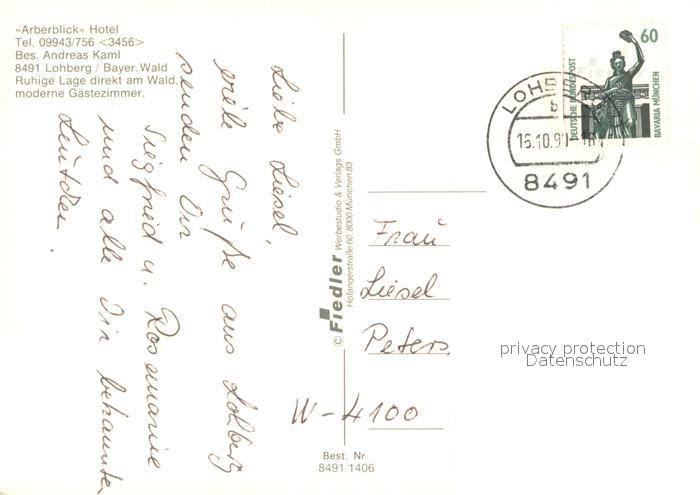 »Arberblick« Hotel
Tel. 09943/756 <3456>
Bes. Andreas Kaml
8491 Lohberg / Bayer. Wald
Ruhige Lage direkt am Wald,
moderne Gästezimmer.
Liebe Liesel,
viele Grüße aus Lohberg
senden Dir
Siegfried u. Rosemarie
und alle Dir bekannten
Leutchen.
© Fiedler Werbestudio & Verlags GmbH
Hofangerstraße 60 8000 München 83
60
DEUTSCHE BUNDESPOST
BAVARIA MÜNCHEN
Fiedler
LOHBERG
b
16.10.91-16
8491
Frau
Liesel
Peters
W-4100
privacy protection
Datenschutz
Best. Nr.
8491/1406